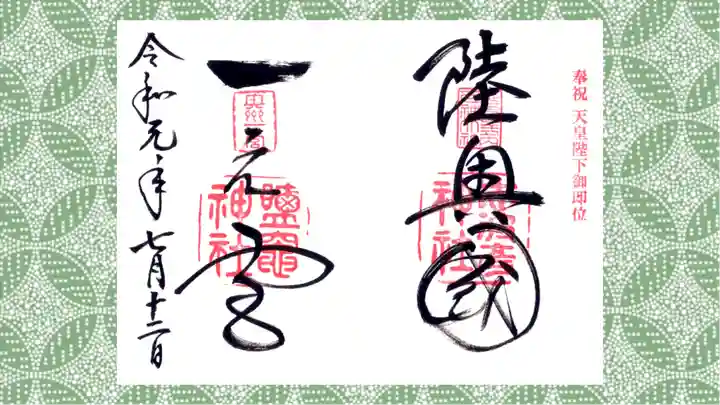 奉祝 天皇陛下御即位
陸奥國
志波彦
神社
一之宮
奥州一宮
鹽竈
神社
令和元年七月十二日